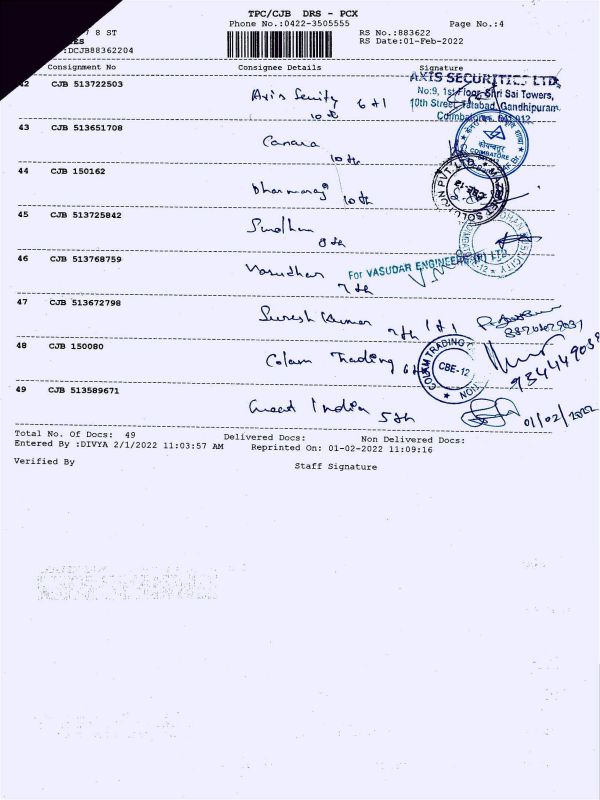 TPC/CJB DRS - PCX
Phone No.:0422-3505555 Page No.:4
7 8 ST RS No.:883622
:DCJB88362204 RS Date:01-Feb-2022
Consignment No Consignee Details Signature
42 CJB 513722503 Axis
AXIS SECURITIES LTD
No:9, 1st Floor, Shri Sai Towers,
10th Street, Tatabad, Gandhipuram,
43 CJB 513651708 Canara
10th
COIMBATORE
44 CJB 150162 Dharmaraj 10th
45 CJB 513725842
8th
46 CJB 513768759 Vasudhar 7th
For VASUDAR ENGINEERS (P) LTD
47 CJB 513672798 Suresh Kumar 7th
48 CJB 150080 Colam Trading 6th
COLAM TRADING
CBE-12
49 CJB 513589671 India 5th 01/02/2022
Total No. Of Docs: 49 Delivered Docs: Non Delivered Docs:
Entered By :DIVYA 2/1/2022 11:03:57 AM Reprinted On: 01-02-2022 11:09:16
Verified By Staff Signature